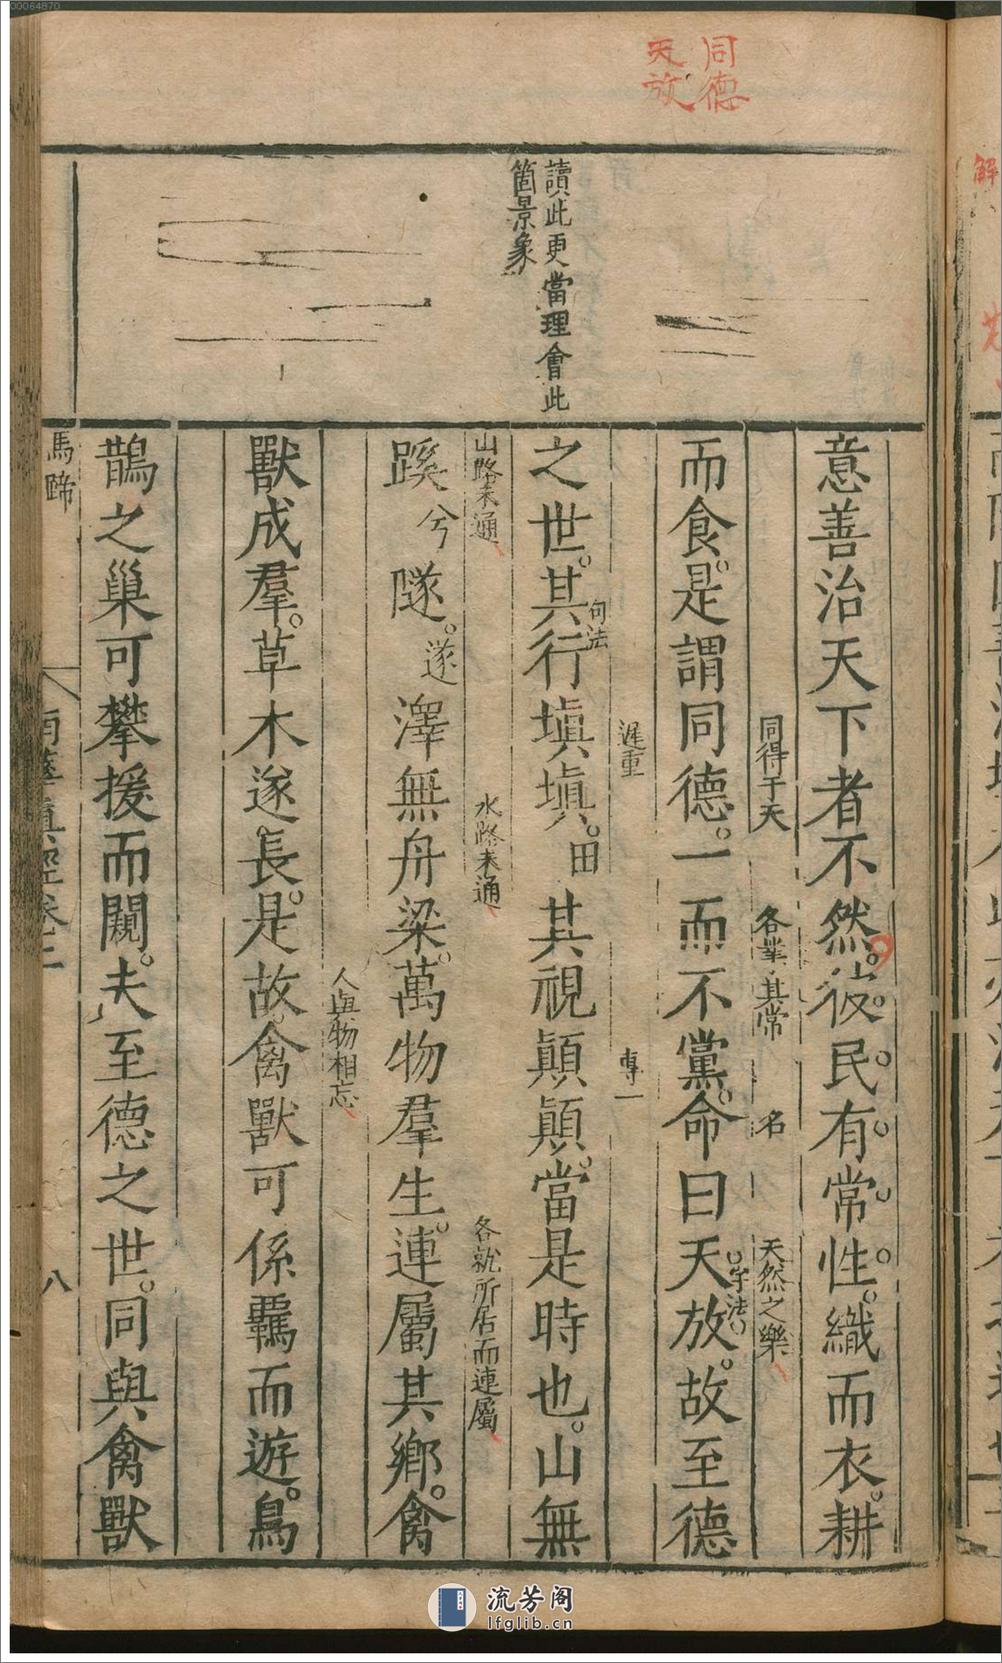 00064870
同德
天放
讀此更當理會此
箇景象
意善治天下者不然彼民有常性織而衣耕
同得于天
各業其常
名
天然之樂
而食是謂同德一而不黨命曰天放故至德
字法
遲重
專一
之世其行塡塡田其視顛顛當是時也山無
句法
山路未通
水路未通
各就所居而連屬
蹊兮隧遂澤無舟梁萬物羣生連屬其鄉禽
人與物相忘
獸成羣草木遂長是故禽獸可係羈而遊鳥
鵲之巢可攀援而闚夫至德之世同與禽獸
馬蹄
南華眞經卷二
八
解
流芳阁
lfglib.cn